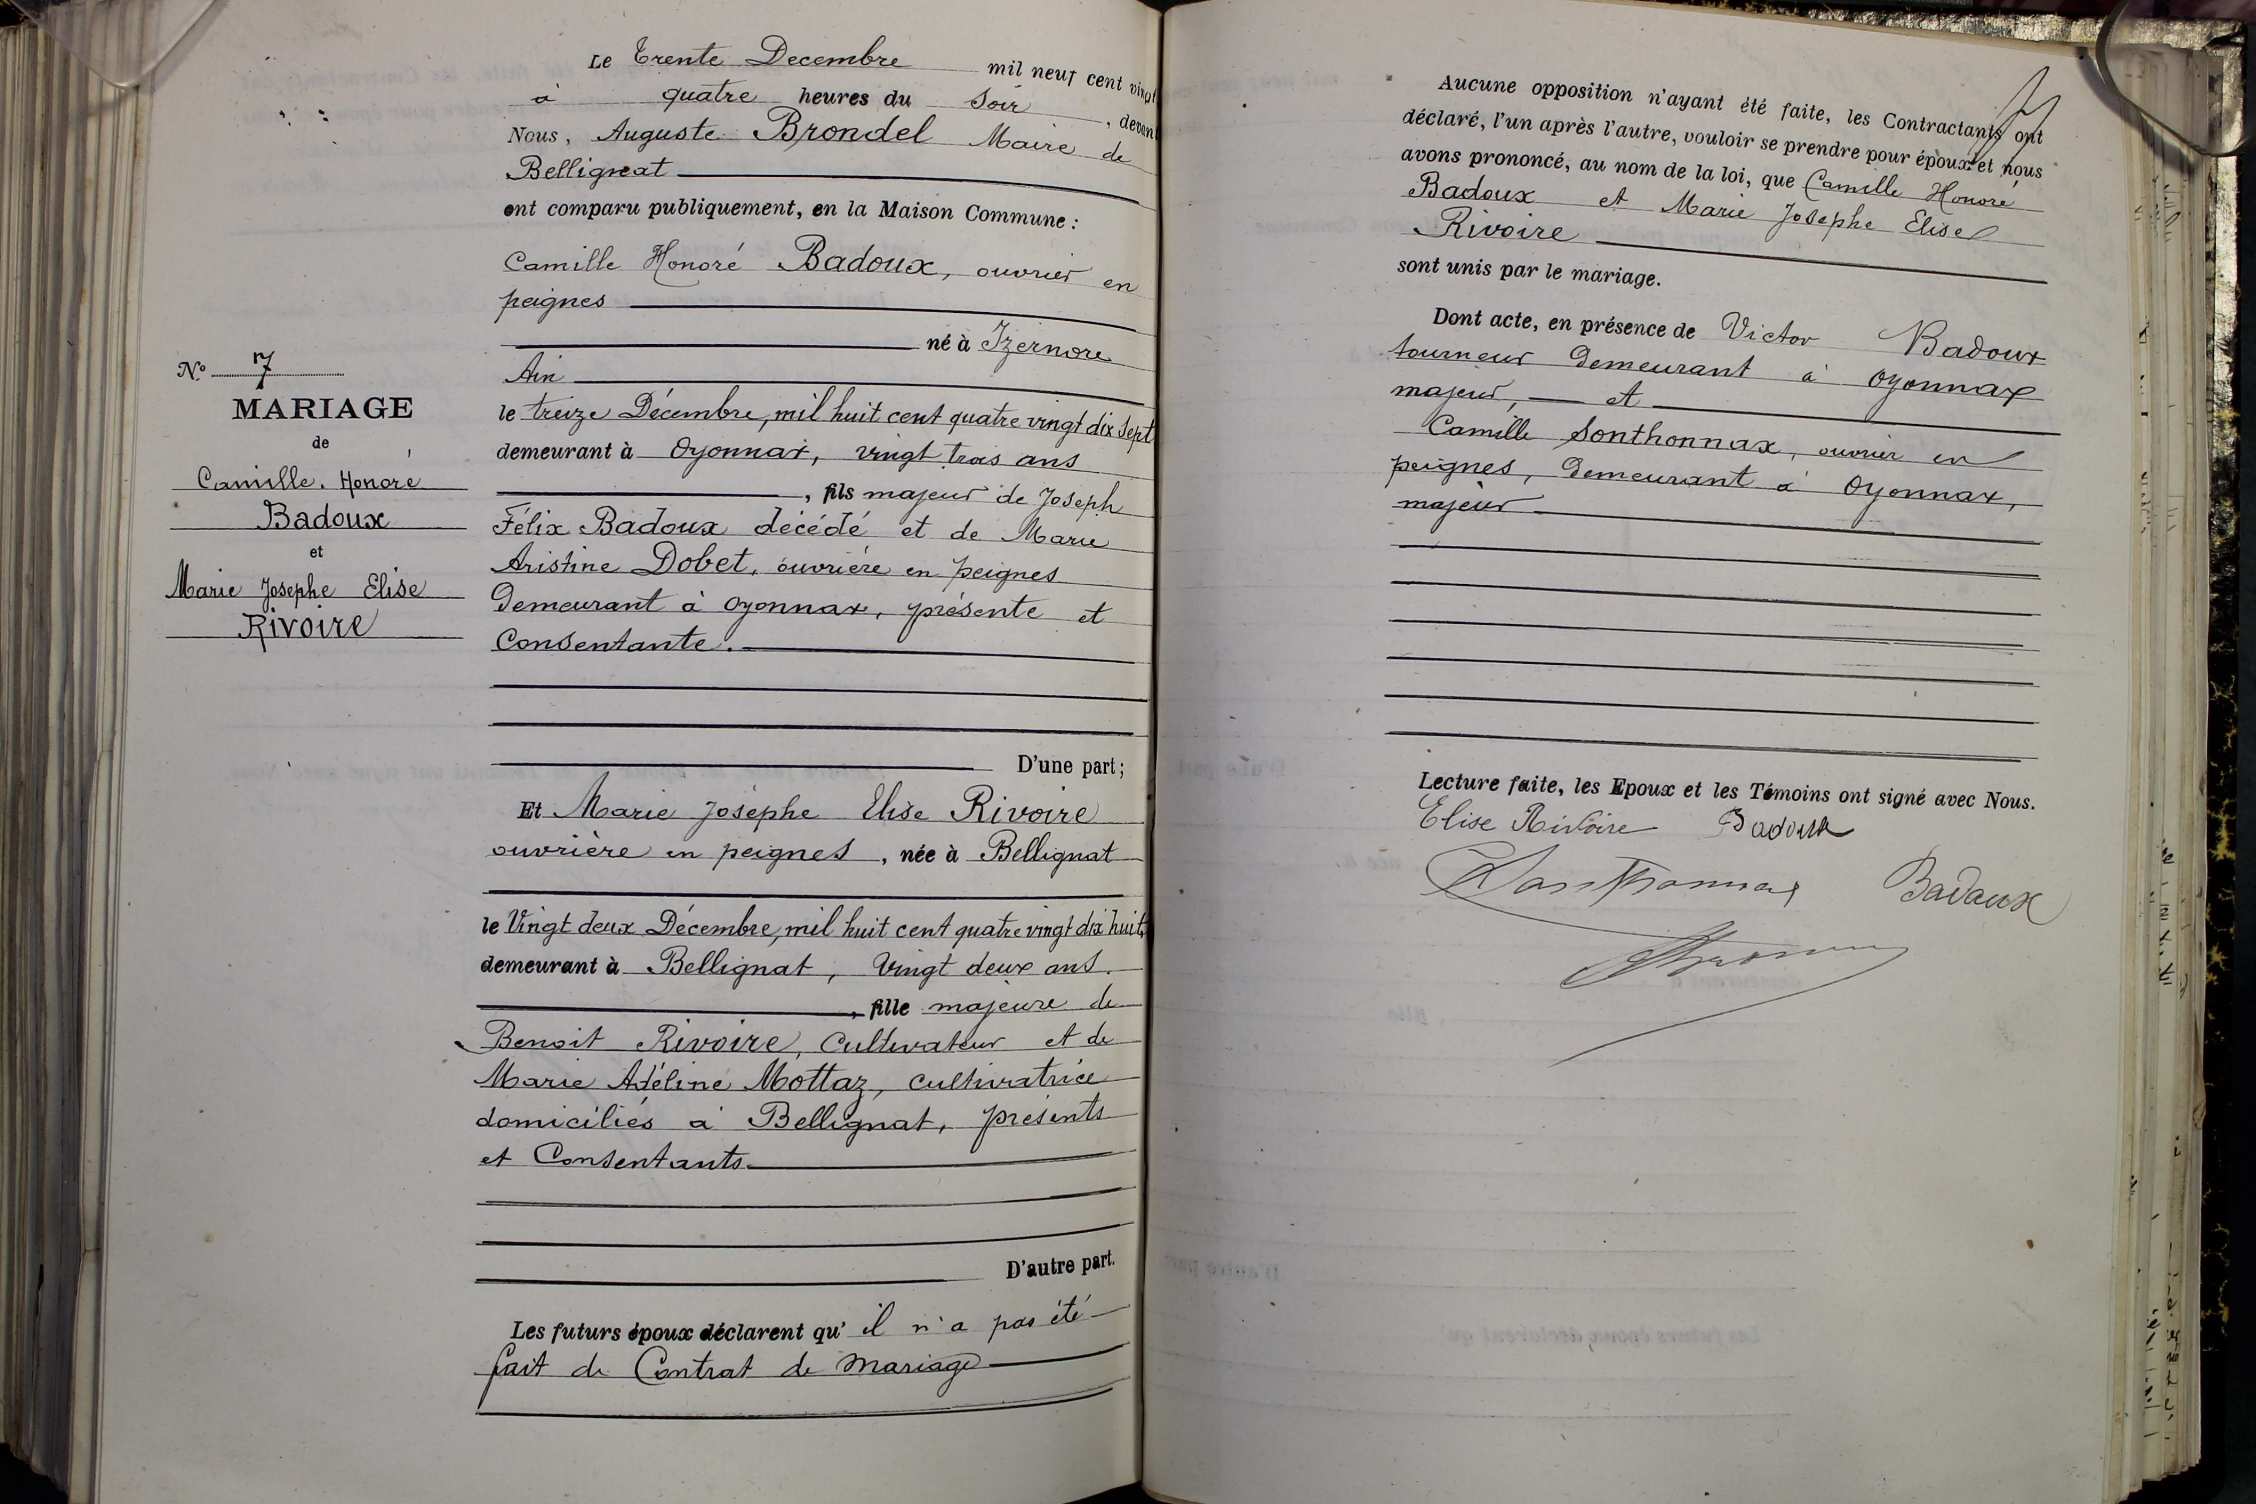 Le Trente Decembre mil neuf cent vingt
à quatre heures du Soir, devant
Nous, Auguste Brondel Maire de
Bellignat
ont comparu publiquement, en la Maison Commune :
Camille Honoré Badoux, ouvrier en
peignes
né à Izernore
Ain
le treize Décembre, mil huit cent quatre vingt dix sept
demeurant à Oyonnax, vingt trois ans
, fils majeur de Joseph
Félix Badoux décédé et de Marie
Aristine Dobet, ouvrière en peignes
demeurant à Oyonnax, présente et
Consentante.
D'une part ;
Et Marie Josèphe Elise Rivoire
ouvrière en peignes, née à Bellignat
le Vingt deux Décembre, mil huit cent quatre vingt dix huit,
demeurant à Bellignat, Vingt deux ans.
, fille majeure de
Benoit Rivoire, Cultivateur et de
Marie Adéline Mottaz, cultivatrice
domiciliés à Bellignat, présents
et Consentants
D'autre part.
Les futurs époux déclarent qu' il n'a pas été
fait de Contrat de mariage
N.o 7
MARIAGE
de
Camille, Honoré
Badoux
et
Marie Josephe Elise
Rivoire
Aucune opposition n'ayant été faite, les Contractants ont
déclaré, l'un après l'autre, vouloir se prendre pour époux et nous
avons prononcé, au nom de la loi, que Camille Honoré
Badoux et Marie Josephe Elise
Rivoire
sont unis par le mariage.
Dont acte, en présence de Victor Badoux
tourneur demeurant à Oyonnax
majeur, et
Camille Sonthonnax, ouvrier en
peignes, demeurant à Oyonnax,
majeur
Lecture faite, les Epoux et les Témoins ont signé avec Nous.
Elise Rivoire Badoux
Sonthonnax Badoux